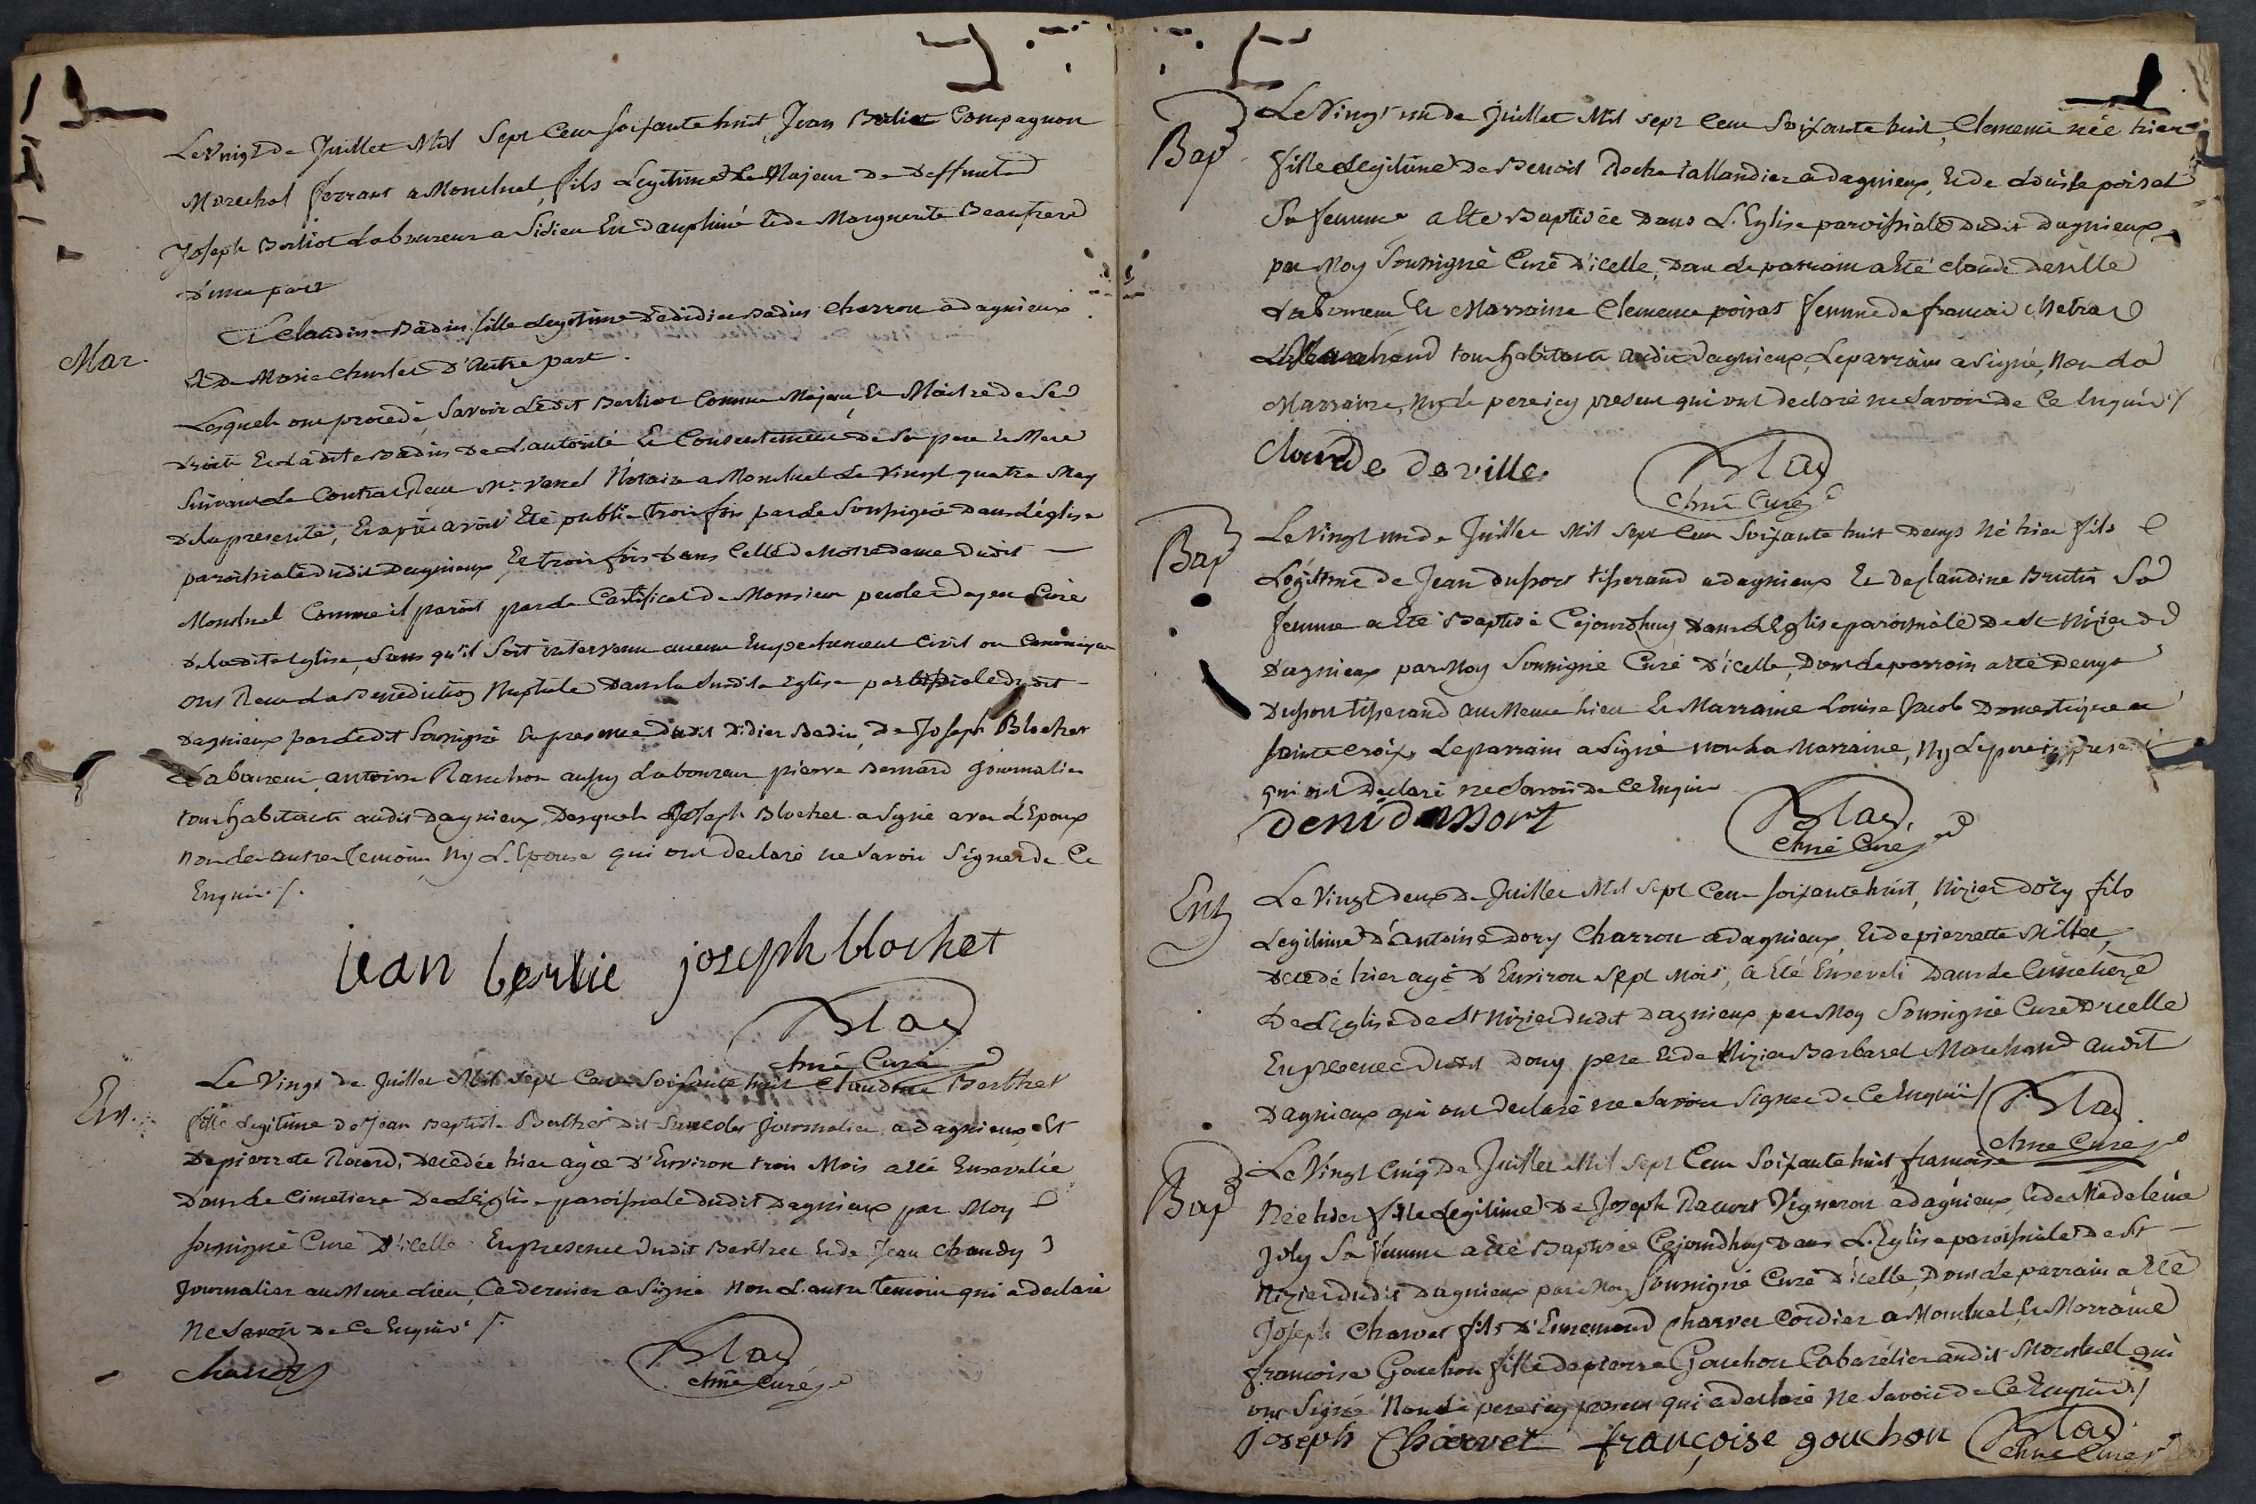 Le vingt de Juillet Mil Sept Cent soixante huit Jean Berliot Compagnon
Marechal ferrant a Montluel fils Legitime & Majeur de deffunt
Joseph Berliot Laboureur a Sidieu En dauphiné & de Marguerite Beaufrere
d'une part
Mar.
Et Claudine Badin fille Legitime de didier Badin charron a dagnieux
Et de Marie Churlet d'autre part.
Lesquels ont procedé, Savoir Ledit Berliot Comme Majeur & Maitre de Ses
droits Et Ladite Badin de L'autorité & Consentement de Ses pere & Mere
Suivant Le Contrat Receu Mr. Vanel Notaire a Montluel Le vingt quatre May
de la presente, Et après avoir Eté publié trois fois par Le Soussigné dans L'église
paroissiale dudit Dagnieux, Et trois fois dans Celle de Notre dame dudit
Montluel Comme il paroit par Le Certificat de Monsieur Curé
de Ladite Eglise, Sans qu'il Soit intervenu aucun Empechement Civil ou Canonique
ont Receu La Benediction Nuptiale Dans la Susdite Eglise paroissiale dudit
Dagnieux par Ledit Soussigné En presence dudit Didier Badin, de Joseph Blochet
Laboureur, antoine Ranchon aussy Laboureur pierre Bernard journalier
tous habitants audit dagnieux, Desquels Joseph Blochet a Signé avec L'Epoux
non Les autres temoins Ny L'Epouse qui ont declaré ne Savoir Signer de Ce
Enquis /.
jean berlie joseph blochet
Blad
chne Curé
Ent.
Le vingt de Juillet Mil Sept Cent Soixante huit Claudine Berthet
fille Legitime de Jean Baptiste Berthet dit journalier a dagnieux, Et
De pierrette Ronard, Decedée hier agée D'Environ trois Mois a eté Ensevelie
Dans Le Cimetiere De L'Eglise paroissiale dudit Dagnieux par Moy
soussigné Curé D'icelle En presence dudit Berthet Et de Jean chaudy
Journalier au Meme Lieu, Ce dernier a Signé Non L'autre temoin qui a declaré
Ne Savoir de Ce Enquis /.
chaudy
Blad
chne Curé
Bap
Le Vingt un de Juillet Mil sept Cent Soixante huit, Clemence née hier
fille Legitime de Benoit Roche taillandier a dagnieux, Et de Louise poisat
Sa femme a Eté Baptisée Dans L'Eglise paroissiale dudit dagnieux
par Moy Soussigné Curé D'icelle, Dont Le parrain a Eté claude deville
Laboureur Et Marraine Clemence poisat femme de francois Metra
tous habitants audit Dagnieux, Le parrain a Signé, Non La
Marraine, Ny Le pere icy present qui ont declaré ne Savoir de Ce Enquis /
Claude deville
Blad
chne Curé
Bap
Le Vingt un de Juillet Mil Sept Cent Soixante huit Denys Né hier fils
Légitime de Jean dussort tisserand a dagnieux Et de Claudine Brutin Sa
femme a Eté Baptisé Cejourdhuy Dans L'Eglise paroissiale De St Nizier de
Dagnieux par Moy Soussigné Curé D'icelle, Dont Le parrain a eté Denys
Dussort tisserand au Meme Lieu Et Marraine Louise Jacob Domestique a
sainte croix, Le parrain a Signé non La Marraine, Ny Le pere icy present
qui ont Declaré ne Savoir de Ce Enquis
deni dussort
Blad
chne Curé
Ent
Le Vingt deux de Juillet Mil Sept Cent soixante huit, Nizier Dory fils
Legitime d'antoine Dory Charron a dagnieux, Et de pierrette Millet
Decedé hier agé D'Environ Sept Mois, a Eté Enseveli Dans Le Cimetiere
De L'Eglise de St Nizier dudit Dagnieux par Moy Soussigné Curé D'icelle
En presence dudit Dory pere Et de Nizier Barbaret Marchand audit
Dagnieux qui ont Declaré ne Savoir Signer de Ce Enquis /
Blad
chne Curé
Bap
Le Vingt Cinq De Juillet Mil Sept Cent Soixante huit francoise
Née hier fille Légitime De Joseph Ravort Vigneron a dagnieux, Et de Madeleine
Joly Sa femme a Eté Baptisée Cejourdhuy Dans L'Eglise paroissiale de St
Nizier dudit Dagnieux par Moy Soussigné Curé D'icelle, Dont Le parrain a Eté
Joseph Charvet fils D'Ennemond Charvet Cordier a Montluel, Et Marraine
francoise Gouchon fille de pierre Gouchon Cabaretier audit Montluel qui
ont Signé Non Le pere icy present qui a declaré Ne Savoir de Ce Enquis /
joseph Charvet françoise gouchon
Blad
chne Curé